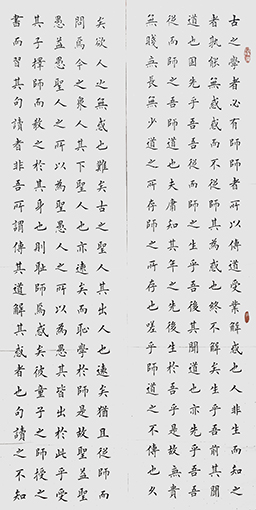 古之學者必有師師者所以傳道受業解惑也人非生而知之
者孰能無惑惑而不從師其為惑也終不解矣生乎吾前其聞
道也固先乎吾吾從而師之生乎吾後其聞道也亦先乎吾吾
從而師之吾師道也夫庸知其年之先後生於吾乎是故無貴
無賤無長無少道之所存師之所存也嗟乎師道之不傳也久
矣欲人之無惑也難矣古之聖人其出人也遠矣猶且從師而
問焉今之衆人其下聖人也亦遠矣而恥學於師是故聖益聖
愚益愚聖人之所以為聖愚人之所以為愚其皆出於此乎愛
其子擇師而教之於其身也則恥師焉惑矣彼童子之師授之
書而習其句讀者非吾所謂傳其道解其惑者也句讀之不知